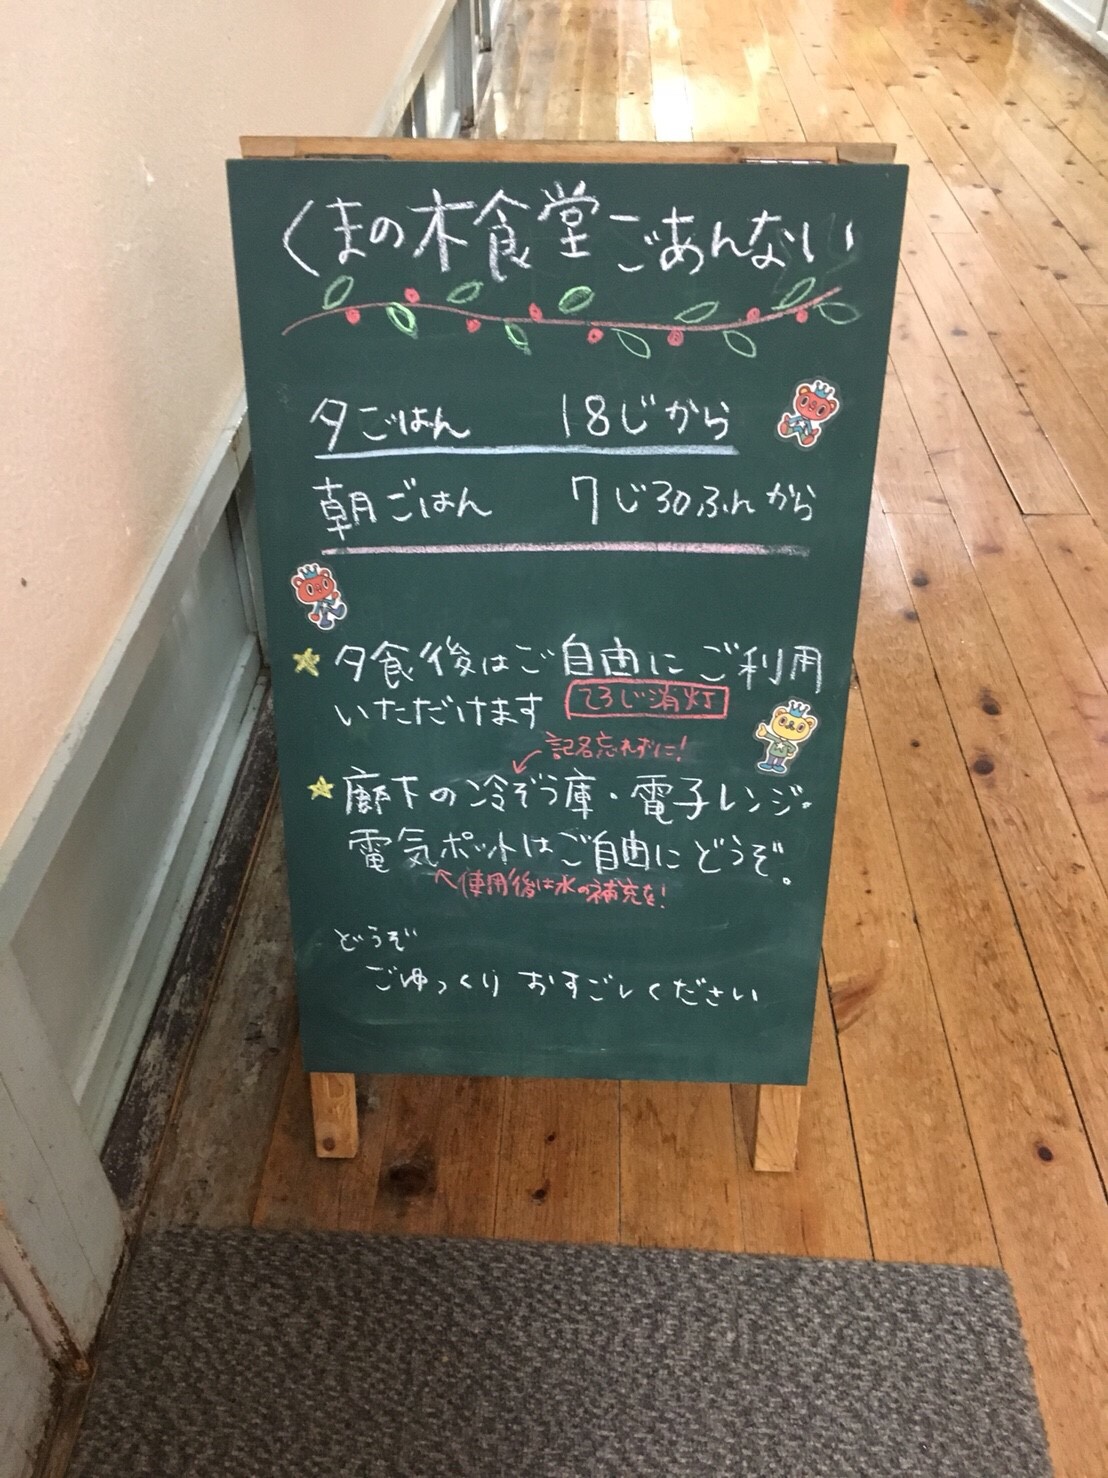 くまの木食堂ごあんない
夕ごはん 18じから
朝ごはん 7じ30ふんから
★夕食後はご自由にご利用
いただけます 23じ消灯
記名忘れずに!
★廊下の冷ぞう庫・電子レンジ・
電気ポットはご自由にどうぞ。
使用後は水の補充を!
どうぞ
ごゆっくりおすごしください